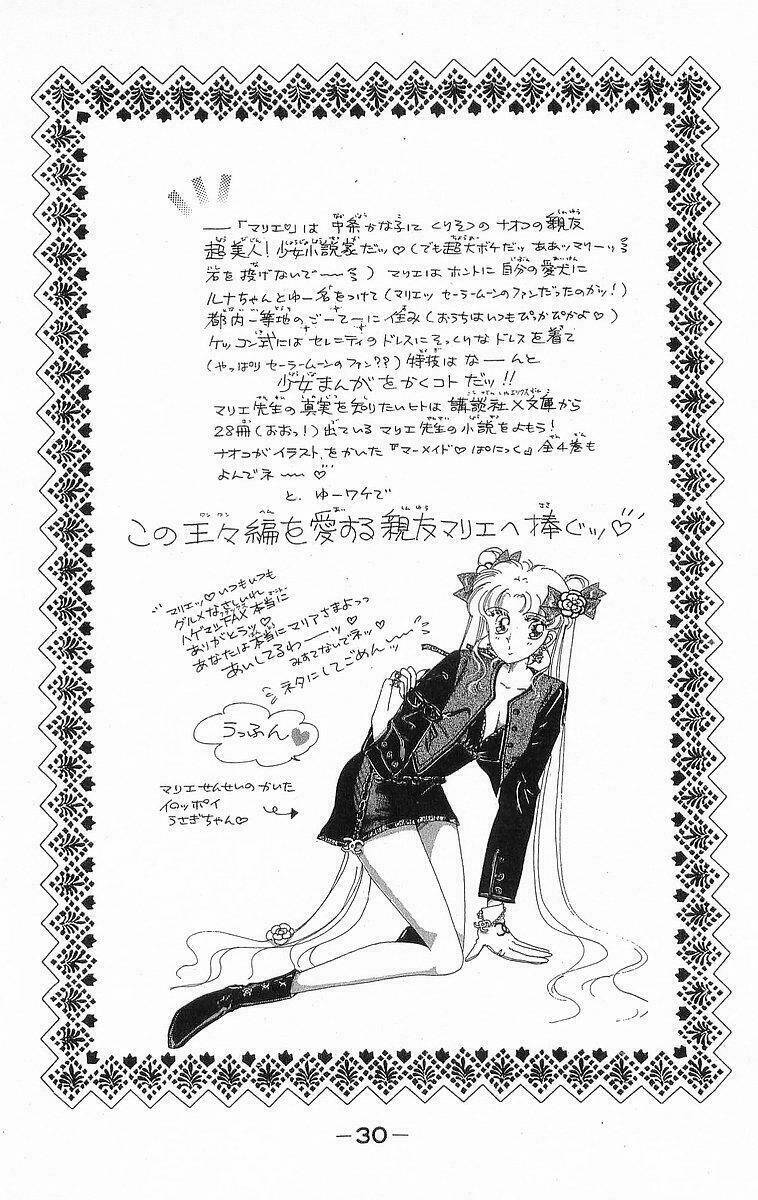 —「マリエ」は 中条かな子に くりそつの ナオコの親友
超美人！少女小説家だッ♡(でも超大ボケだッ ああッマリーッ
岩を投げないで〜〜) マリエは ホントに 自分の愛犬に
ルナちゃんとゆー名をつけて(マリエッ セーラームーンのファンだったのかッ！)
都内一等地のごーてーに 住み(おうちはいつもぴかぴかよ♡)
ケッコン式には セレニティのドレスにそっくりな ドレスを着て
(やっぱり セーラームーンのファン??) 特技は なーんと
少女まんがをかくコトだッ!!
マリエ先生の真実を知りたいヒトは 講談社X文庫から
28冊(おおっ！)出ている マリエ先生の小説をよもう！
ナオコがイラストをかいた『マーメイド♡ぱにっく』全4巻も
よんでネ〜〜♡
と、ゆーワケで
この王々編を愛する親友マリエへ捧ぐッ♡
マリエッ♡いつもいつも
グルメなさしいれ
ハゲマシFAX 本当に
ありがとうッ♡
あなたは本当にマリアさまよっっ
あいしてるわーッ♡
みすてないでネッ♡
ネタにしてごめんッ
うっふん♥
マリエせんせいの かいた
イロッポイ
うさぎちゃん♡
—30—